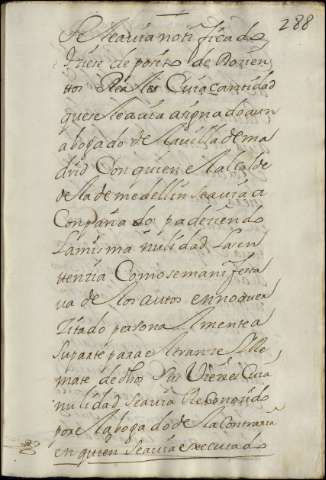 288
Se leavia notificado
hiciese deposito de Dozien
tos Reales Cuia cantidad
que se leavia asignado a un
abogado de la villa de ma
drid Con quien el alcalde
de la de medellin se avia a
Compañado padeziendo
la misma nulidad la sen
tenzia Como se manifesta
va de los autos en no aver
zitado personalmente a
su parte para el tranze y Re
mate de dhos sus Vienes Cuia
nulidad se avia Reconozido
por el abogado de la Contraria
en quien se avia executado